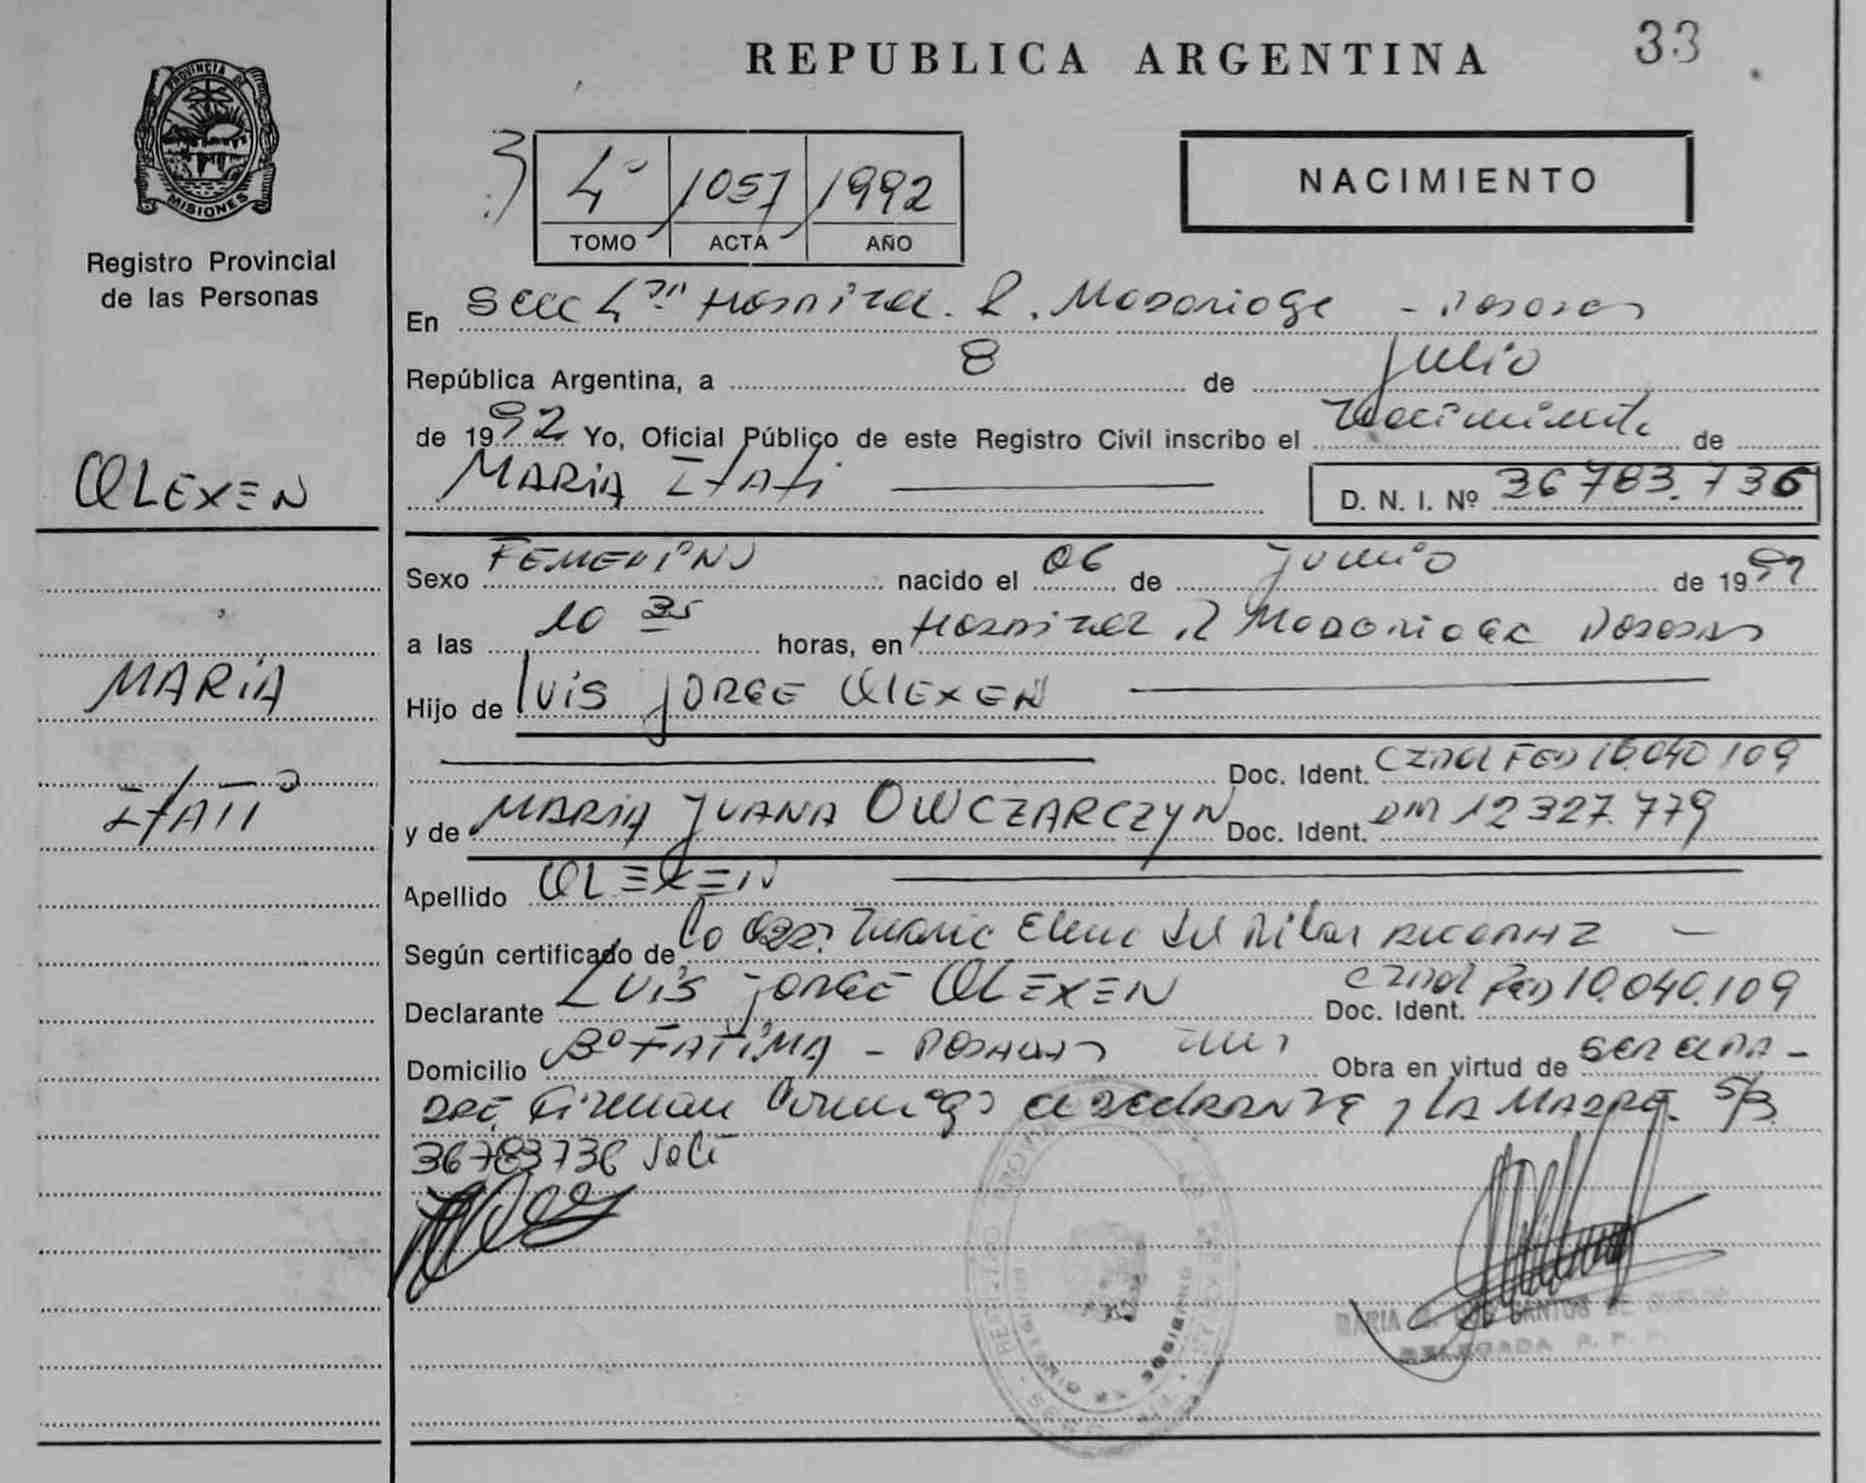 33
REPUBLICA ARGENTINA
PROVINCIA DE
MISIONES
Registro Provincial
de las Personas
NACIMIENTO
4º 1057 1992
TOMO ACTA AÑO
En Secc 4ª Hospital. R. Madariaga - Posadas
República Argentina, a 8 de Julio
de 1992 Yo, Oficial Público de este Registro Civil inscribo el Nacimiento de
MARIA ITATI D. N. I. Nº 36783.736
OLEXEN
MARIA
ITATI
Sexo FEMENINO nacido el 06 de Junio de 1992
a las 10 35 horas, en Hospital R Madariaga Posadas
Hijo de LUIS JORGE OLEXEN
Doc. Ident. 10.040.109
y de MARIA JUANA OWCZARCZYN Doc. Ident. DNI 12327.779
Apellido OLEXEN
Según certificado de la Obst. Maria Elena del Pilar
Declarante LUIS JORGE OLEXEN Doc. Ident. 10.040.109
Domicilio Bº FATIMA - POSADAS Obra en virtud de SER EL PA-
DRE, Firman Conmigo el declarante y LA MADRE. S/B
36783736 Vale
MARIA SANTOS DE
DELEGADA R. P.